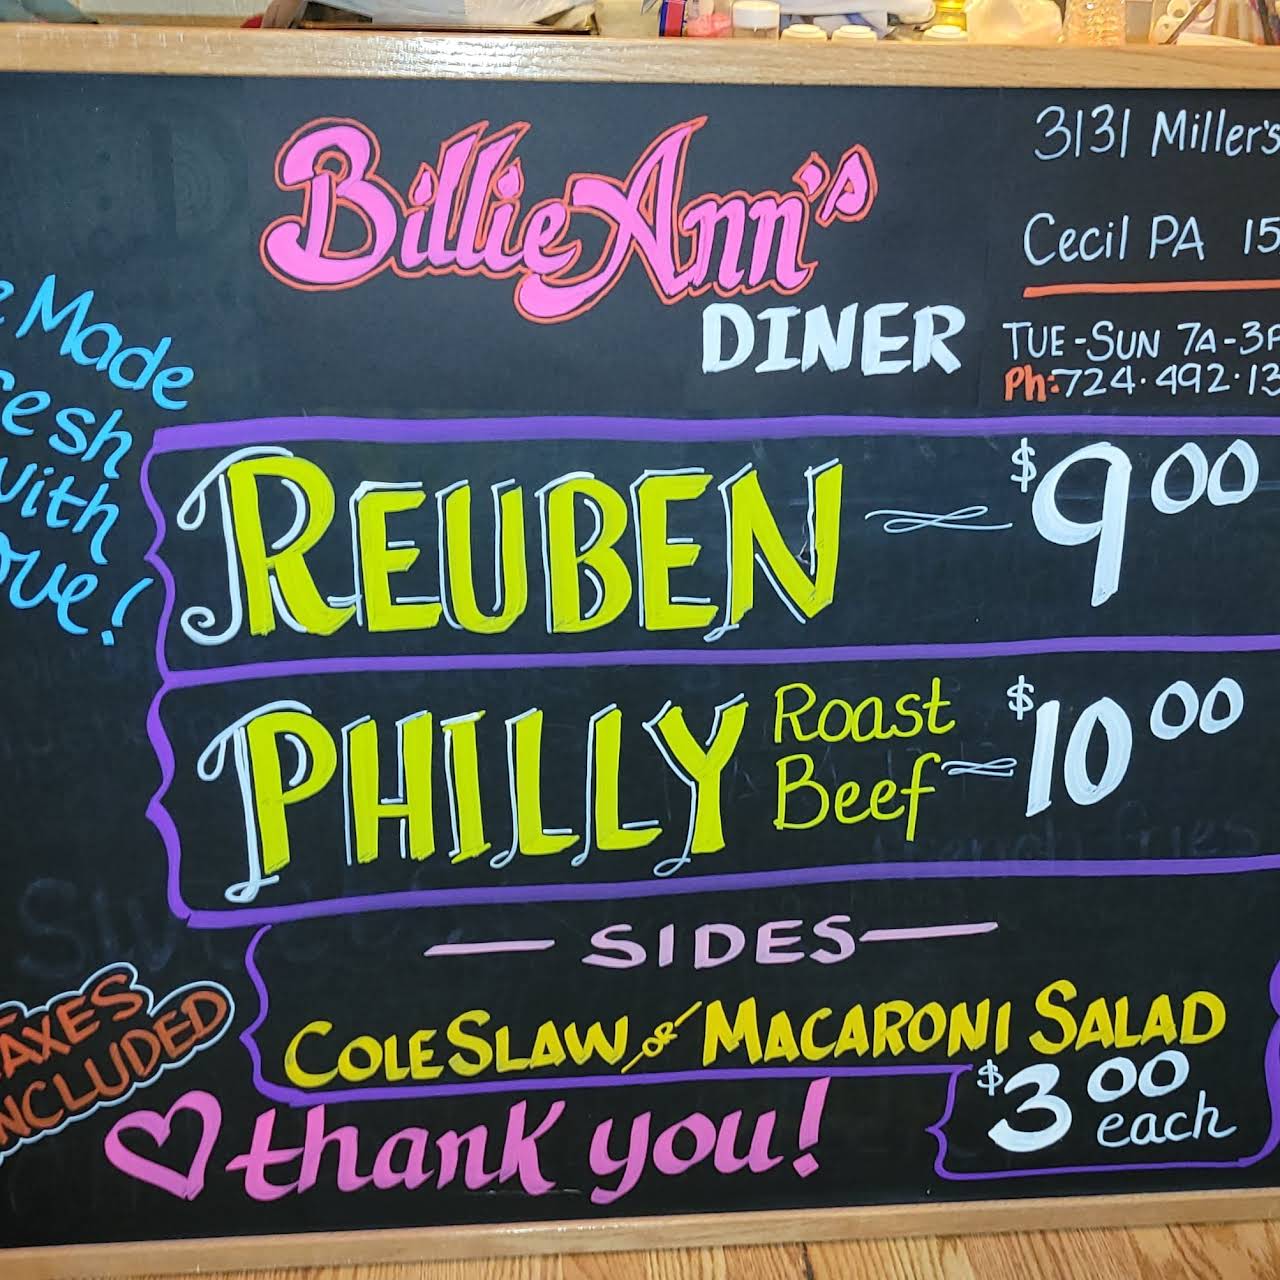 Billie Ann's
DINER
3131 Miller's
Cecil PA 15
TUE-SUN 7A-3P
Ph: 724.492.13
Made
esh
with
ove!
REUBEN $9.00
PHILLY Roast Beef $10.00
SIDES
COLE SLAW or MACARONI SALAD
$3.00 each
TAXES
INCLUDED
thank you!